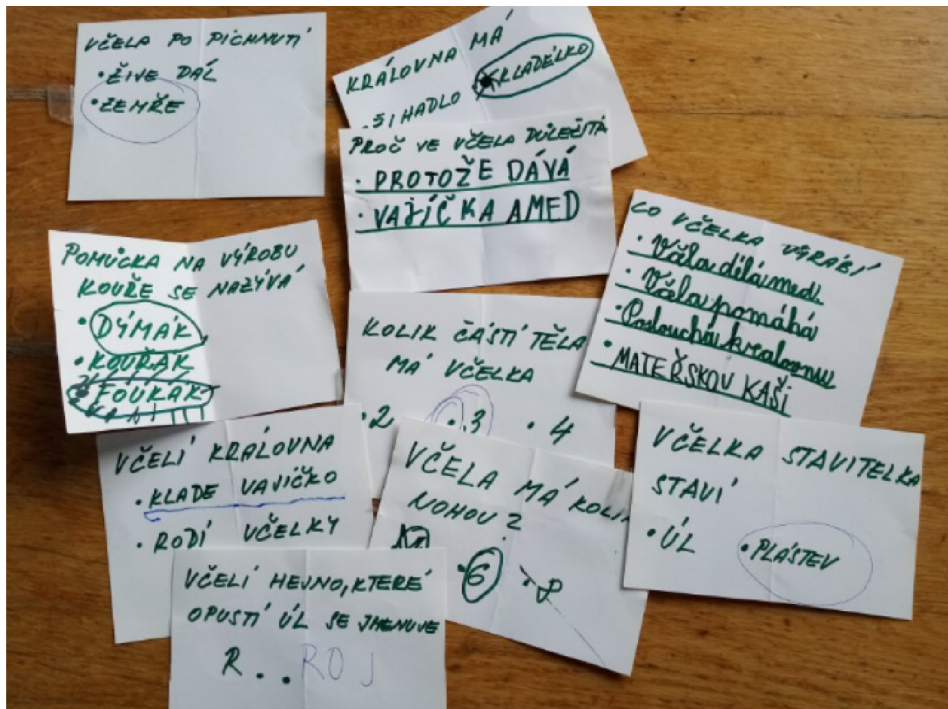 VČELA PO PÍCHNUTÍ
• ŽIVE DÁL
• ZEMŘE
KRÁLOVNA MÁ
• KLADÉLKO
PROČ VE VČELA DŮLEŽITÁ
• PROTOŽE DÁVÁ
• VAJÍČKA A MED
CO VČELKA VYRÁBÍ
• Včela dělá med.
• Včela pomáhá
• Poslouchá
• MATEŘSKOU KAŠI
POMŮCKA NA VÝROBU
KOUŘE SE NAZÝVÁ
• DÝMÁK
• KOUŘÁK
• FOUKÁK
KOLIK ČÁSTÍ TĚLA
MÁ VČELKA
• 2 • 3 • 4
VČELÍ KRÁLOVNA
• KLADE VAJÍČKO
• RODÍ VČELKY
VČELA MÁ KOLIK
NOHOU?
• 6 • 8
VČELKA STAVITELKA
STAVÍ
• ÚL • PLÁSTEV
VČELÍ HEJNO, KTERÉ
OPUSTÍ ÚL SE JMENUJE
R . . ROJ